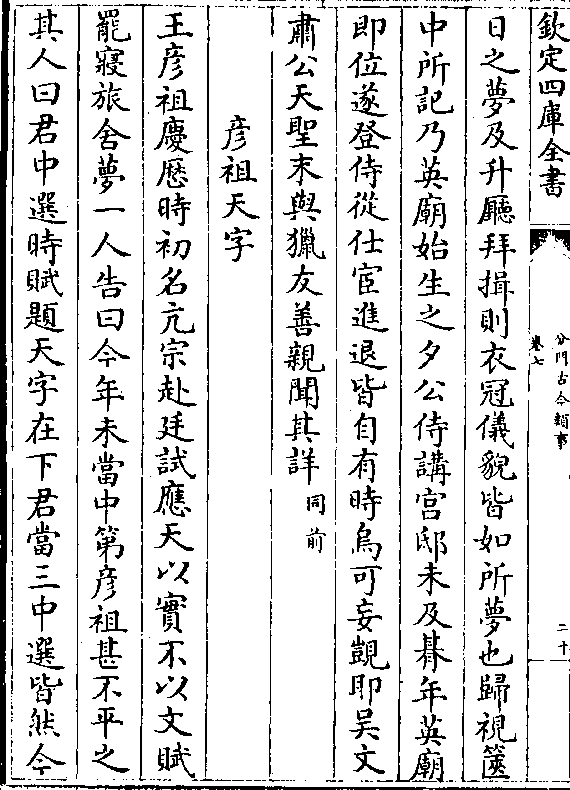 欽定四庫全書
分門古今類事
卷七
二十
日之夢及升廳拜揖則衣冠儀貌皆如所夢也歸視篋
中所記乃英廟始生之夕公侍講宮邸未及朞年英廟
即位遂登侍從仕宦進退皆自有時烏可妄覬即吳文
肅公天聖末與獵友善親聞其詳同前
彦祖天字
王彦祖慶歴時初名亢宗赴廷試應天以實不以文賦
罷寢旅舍夢一人告曰今年未當中第彦祖甚不平之
其人曰君中選時賦題天字在下君當三中選皆然今